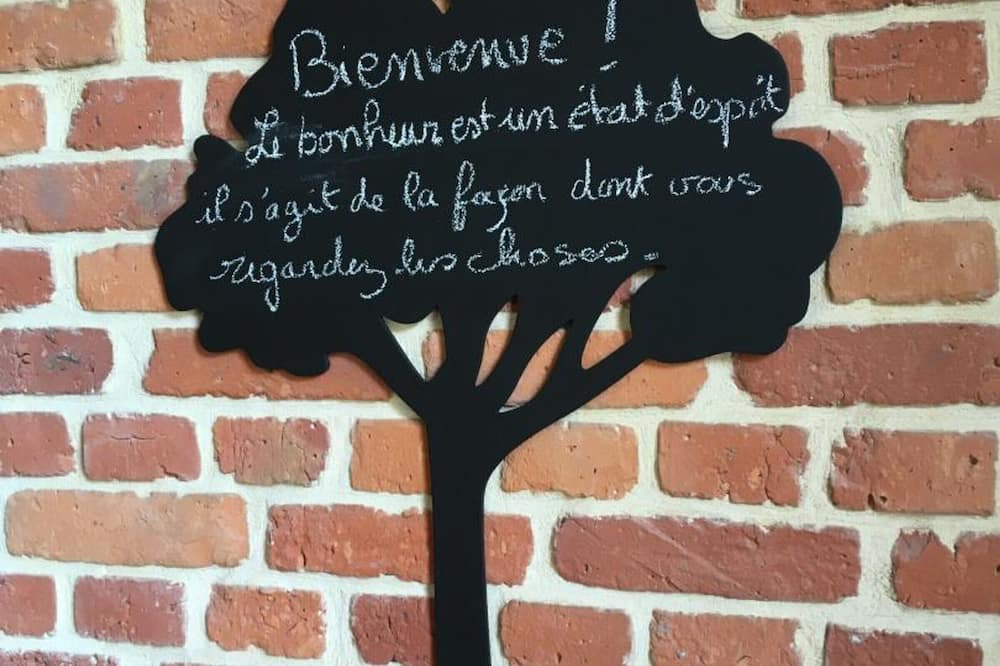 Bienvenue !
Le bonheur est un état d'esprit
il s'agit de la façon dont vous
regardez les choses.